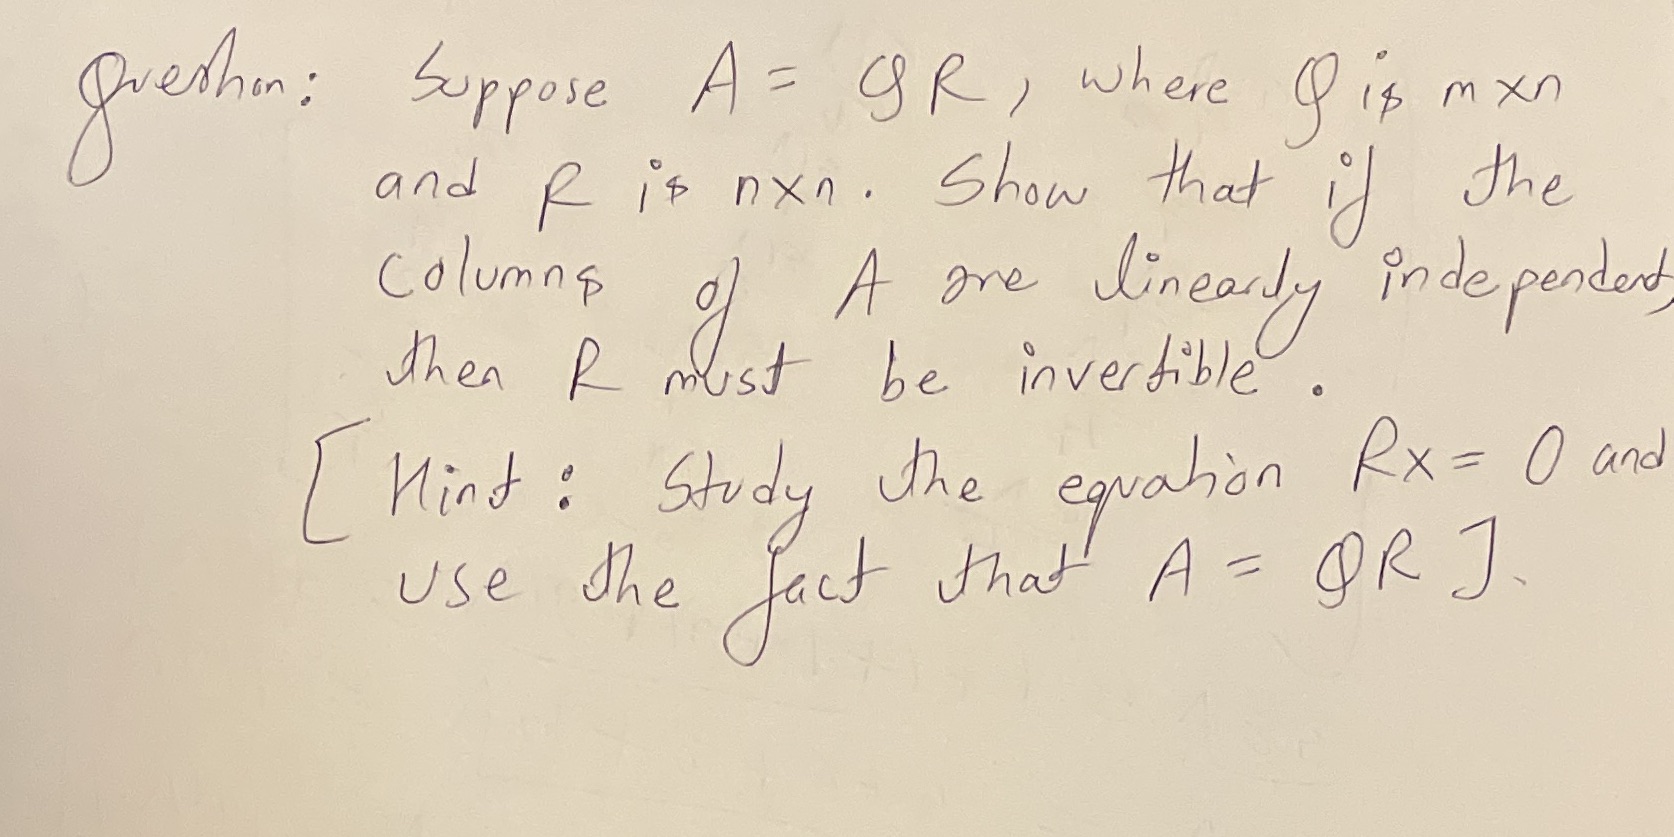 Question: Suppose A = QR, where Q is m×n
and R is n×n. Show that if the
columns of A are linearly independent,
then R must be invertible.
[Hint: Study the equation Rx = 0 and
use the fact that A = QR].